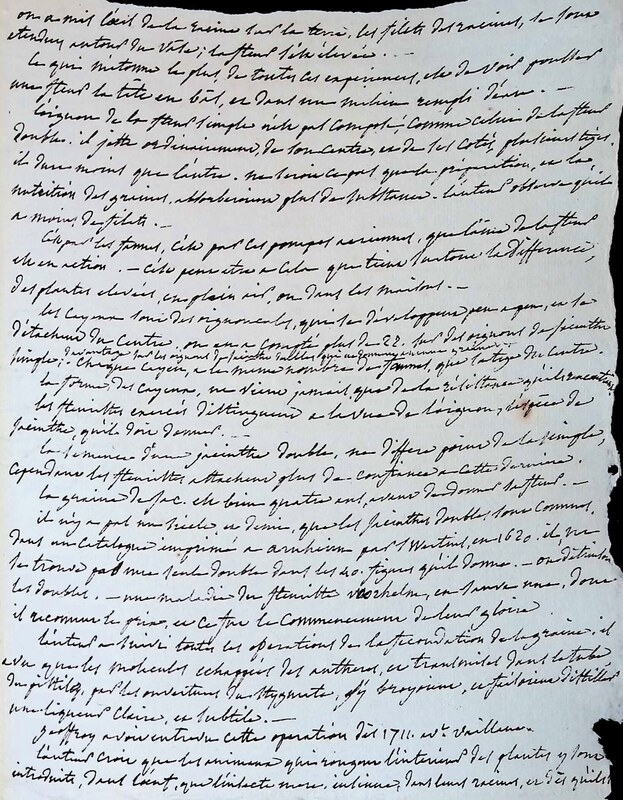 on a mis l'œil de la racine sur la terre, les filets des racines, se sont
etendus autour du vase; la fleur s'est élevée. —
ce qui m'etonne le plus, de toutes ces experiences, est de voir pousser
une fleur la tête en bas, et dans un milieu rempli d'eau. —
l'oignon de la fleur simple n'est pas composé, comme celui de la fleur
double. il jette ordinairement, de son centre, et de ses cotés, plusieurs tiges.
il dure moins que l'autre. ne seroit ce pas que la préparation, et la
nutrition des graines, absorberoient plus de substance. l'auteur observe qu'il
a moins de filets. —
c'est par les fannes, c'est par ces pompes aeriennes, que la seve de la fleur
est en action. — c'est peut etre a cela que tient surtout la différence,
des plantes elevées, en plein air, ou dans les maisons. —
les cayeux sont des oignonets, qui se développent peu a peu, et se
détachent du centre. on en a compté plus de 22. sur des oignons de jacinthe
simple; davantage sur les oignons de jacinthe doubles, qui ne donnent
chaque cayeu, a le meme nombre de fannes, que la tige du centre.
la forme des cayeux, ne vient jamais que de la résistance qu'ils rencontrent.
les fleuristes exercés distinguent a la vue de l'oignon, l'espèce de
jacinthe, qu'il doit donner. —
la semence d'une jacinthe double, ne differe point de la simple,
cependant les fleuristes attachent plus de confiance a cette derniere.
la graine de jac. est bien quatre ans, avant de donner sa fleur. —
il n'y a pas un siècle et demie, que les jacinthes doubles sont connues,
dans un catalogue imprimé a arnheim par Swertius, en 1620. il ne
se trouve pas une seule double dans les 40. figures qu'il donne. — on détruisoit
les doubles. — une maladie du fleuriste voorhelm, en sauva une, dont
il reconnut le prix, et ce fut le commencement de leur gloire.
l'auteur a suivi toutes les operations de la fecondation de la graine; il
a vu que les molecules echappées des antheres, et transmises dans le tube
du pistile, par les ouvertures du stygmate, s'y broyoient, et faisoient distiller
une liqueur claire, et subtile. —
Geoffroy avoit entrevu cette operation dès 1711. avt. vaillant.
l'auteur croit que les animaux qui rongent l'interieur des plantes y sont
introduits, dans l'œuf, que l'insecte mere, insinue, dans leurs racines, et dès qu'ils